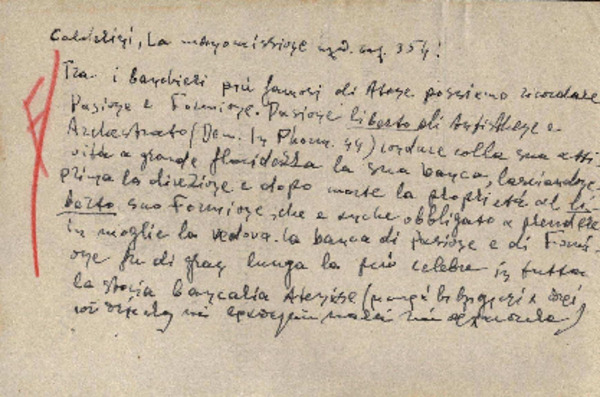 Calderini, La manomissione pag. 354:
Tra i banchieri più famosi di Atene possiamo ricordare
Pasione e Formione. Pasione liberto di Antisthene e
Archestrato (Dem. In Phorm. 44) condusse colla sua atti-
vità a grande floridezza la sua banca, lasciandone
prima la direzione e dopo morte la proprietà al li-
berto suo Formione, che è anche obbligato a prendere
in moglie la vedova. La banca di Pasione e di Formi-
one fu di gran lunga la più celebre in tutta
la storia bancaria Ateniese